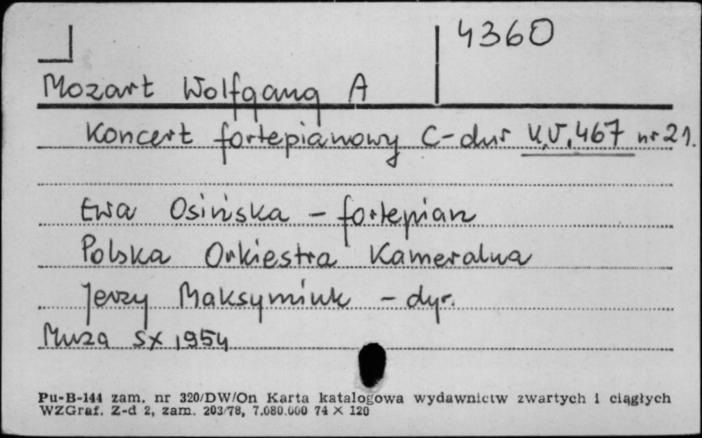 4360
Mozart Wolfgang A
Koncert fortepianowy C-dur K.V. 467 nr 21.
Ewa Osińska - fortepian
Polska Orkiestra Kameralna
Jerzy Maksymiuk - dyr.
Muza SX 1954
Pu-B-144 zam. nr 320/DW/On Karta katalogowa wydawnictw zwartych i ciągłych
WZGraf. Z-d 2, zam. 203/78, 7.080.000 74 × 120